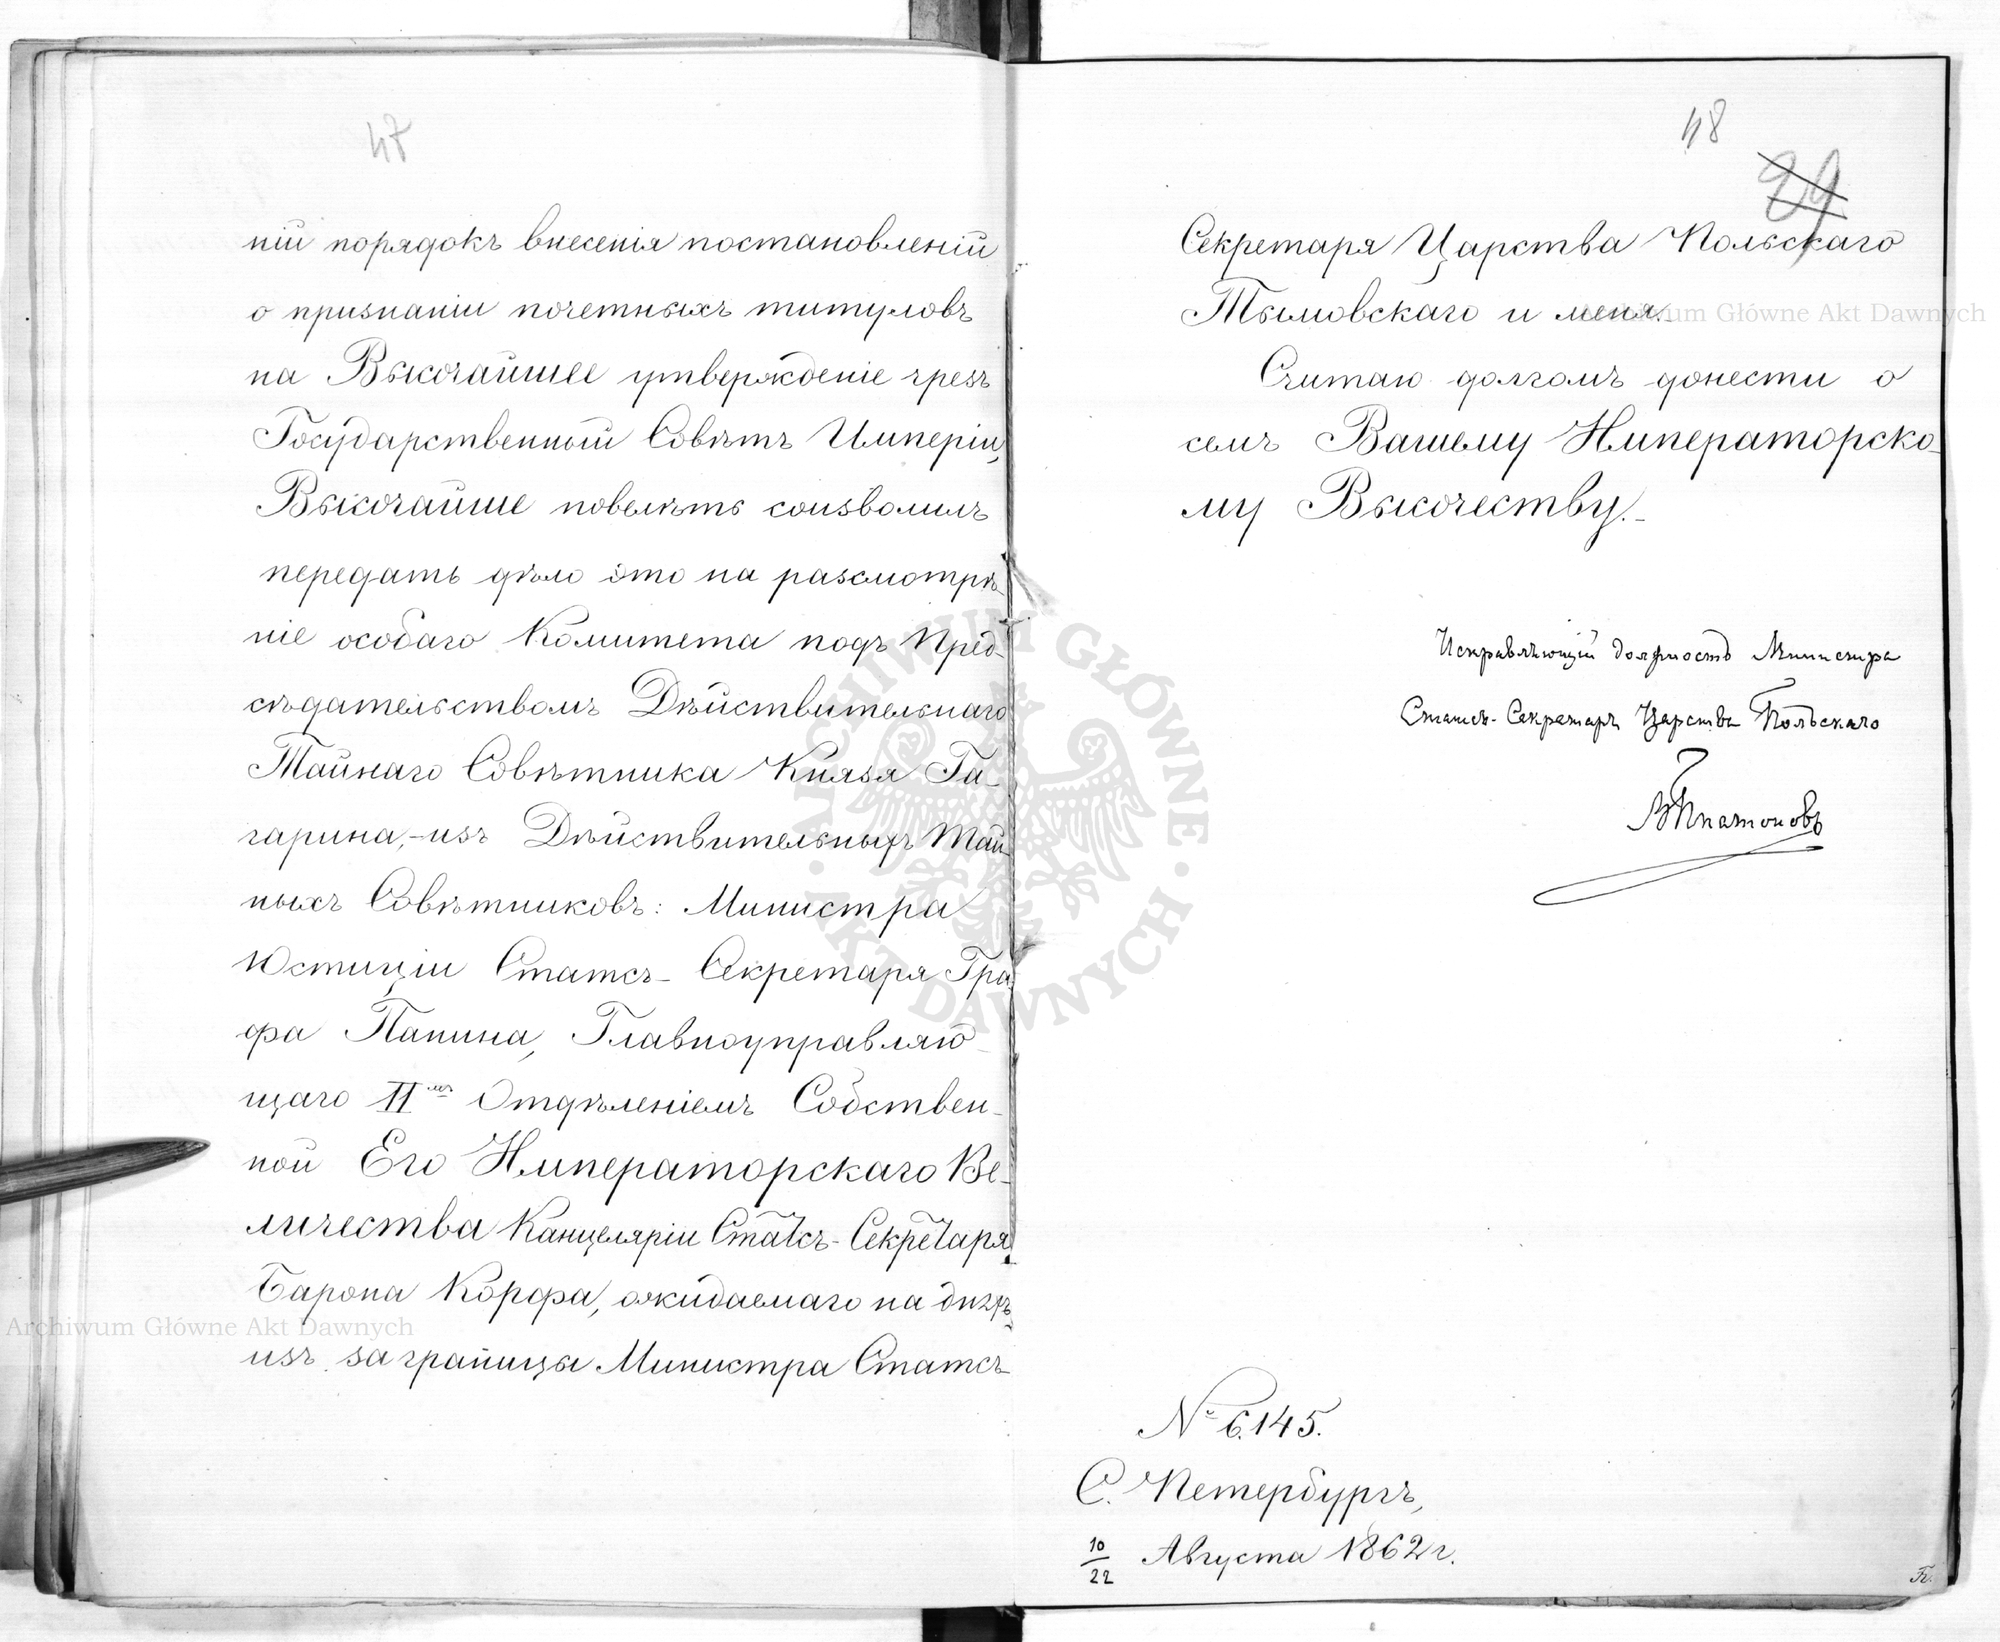 47
ній порядокъ внесенія постановленій
о признаніи почетныхъ титуловъ
на Высочайшее утвержденіе чрезъ
Государственный Совѣтъ Имперіи,
Высочайше повелѣть соизволилъ
передать дѣло это на разсмотрѣ-
ніе особаго Комитета подъ Пред-
сѣдательствомъ Дѣйствительнаго
Тайнаго Совѣтника Князя Га-
гарина,-изъ Дѣйствительныхъ Тай-
ныхъ Совѣтниковъ: Министра
Юстиціи Статсъ-Секретаря Гра-
фа Панина, Главноуправляю-
щаго II мъ Отдѣленіемъ Собствен-
ной Его Императорскаго Ве-
личества Канцеляріи Статсъ-Секретаря
Барона Корфа, ожидаемаго на дняхъ
изъ за границы Министра Статсъ-
48
29
Секретаря Царства Польскаго
Тымовскаго и меня.
Считаю долгомъ донести о
семъ Вашему Императорско-
му Высочеству.
Исправляющій должность Министра
Статсъ-Секретаря Царства Польскаго
В Платоновъ
№ 6.145.
С. Петербургъ,
10/22 Августа 1862 г.
Archiwum Główne Akt Dawnych
Archiwum Główne Akt Dawnych
ARCHIWUM GŁÓWNE · AKT DAWNYCH ·